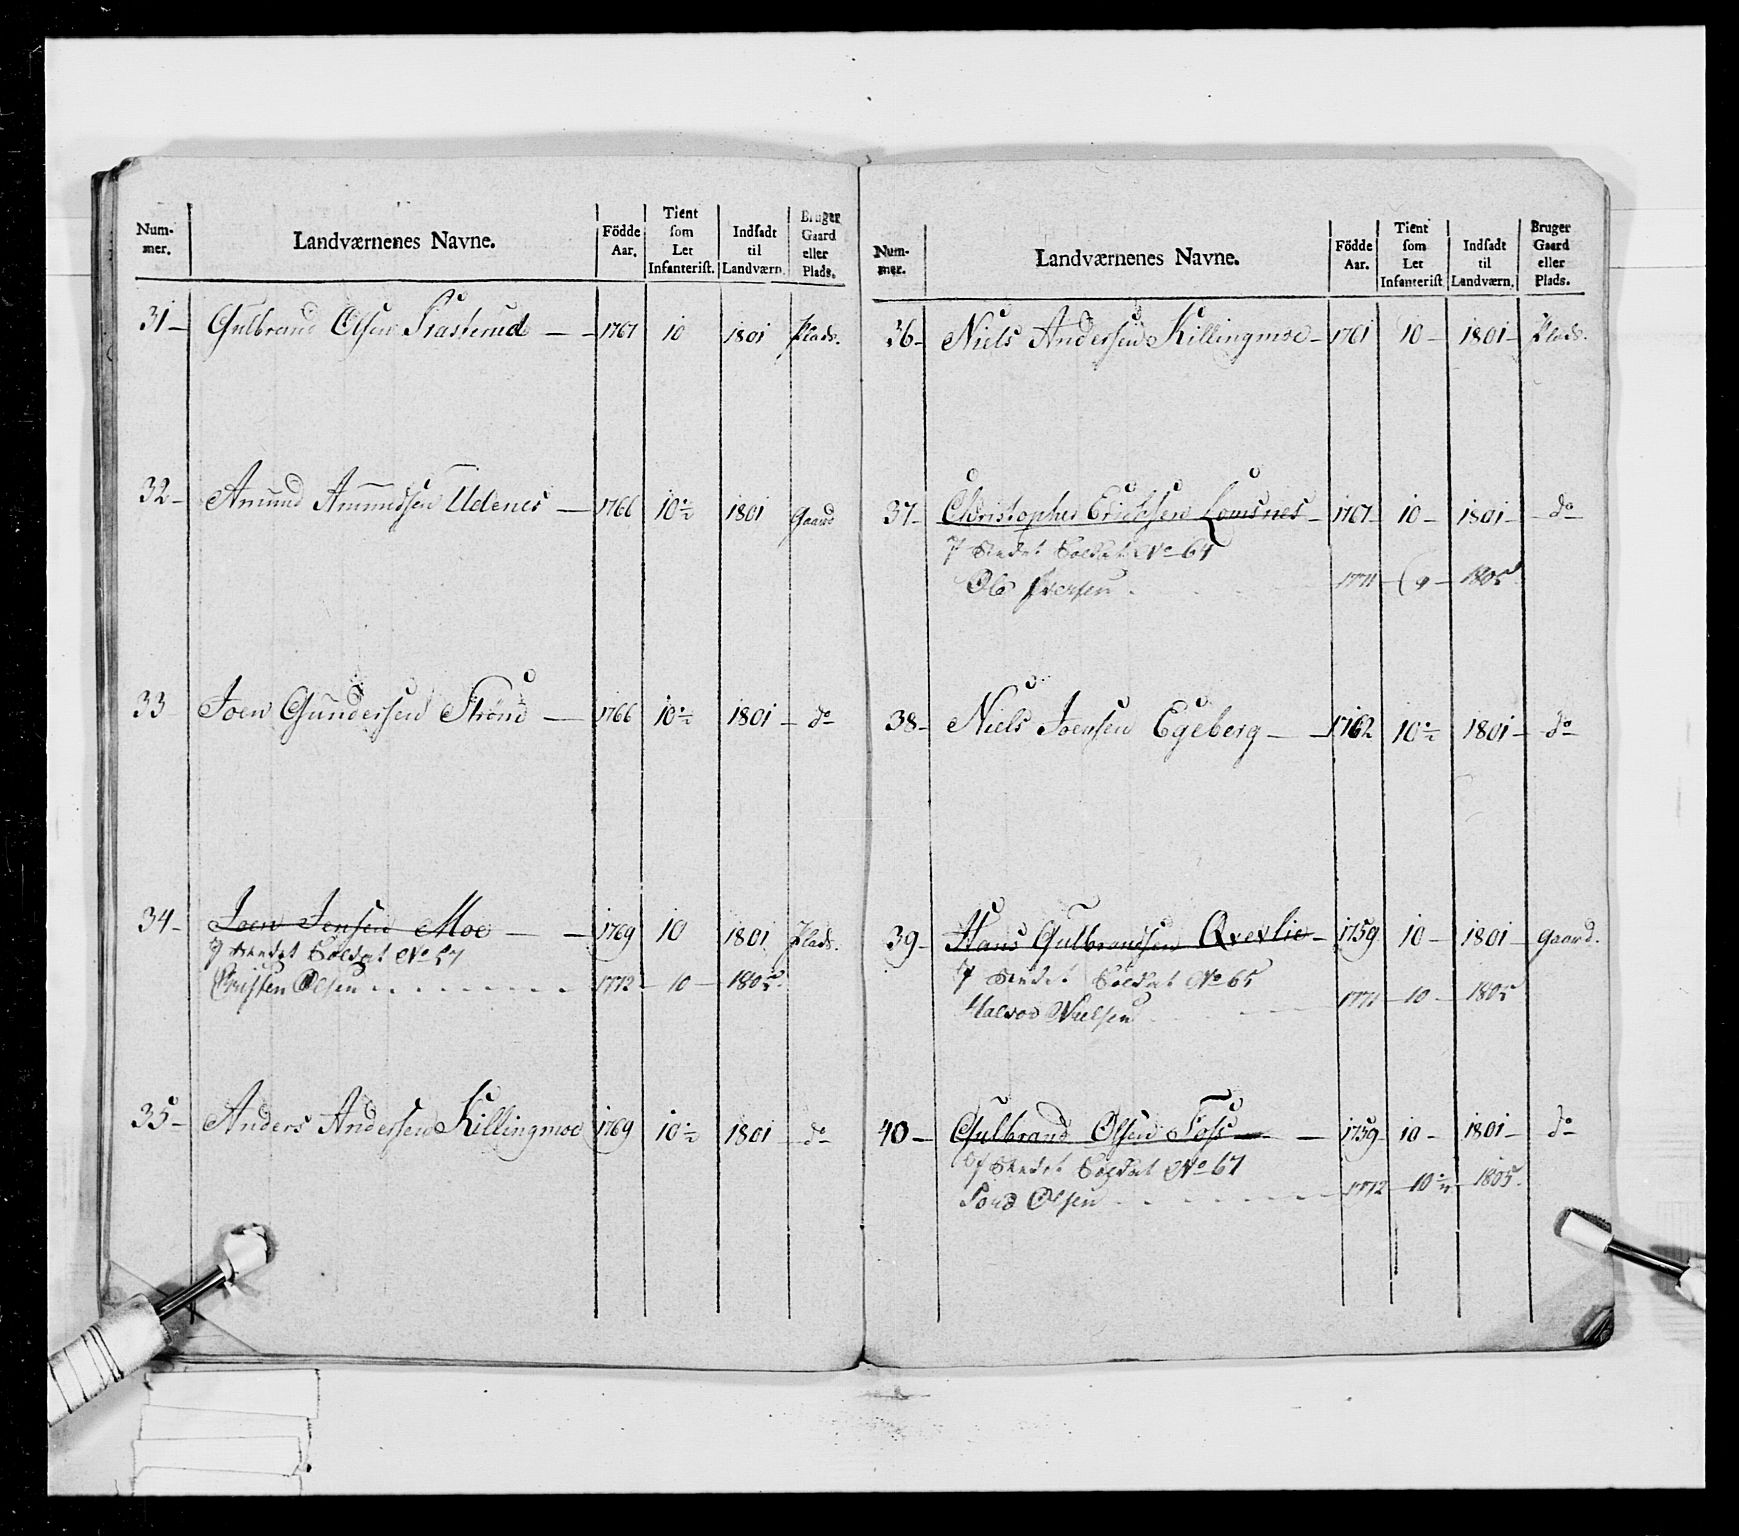 Num-mer. Landværnenes Navne. Födde Aar. Tient som Let Infanterist. Indsadt til Landværn. Bruger Gaard eller Plads.
31 – Gulbrand Olsen Trasterud – – 1767 10 1801 Plads.
32 – Amund Amundsen Udenes – 1766 10½ 1801 Gaard
33 Joen Gundersen Strönd – 1766 10½ 1801 – do
34 – Joen Jensen Moe – – 1769 10 1801 Plads.
Stedet Soldat No 57
Christen Olsen 1772 – 10 – 1805.
35 – Anders Andersen Killingmoe 1769 10½ 1801 – do
Num-mer. Landværnenes Navne. Födde Aar. Tient som Let Infanterist Indsadt til Landværn. Bruger Gaard eller Plads.
36 – Niels Andersen Killingmoe – 1761 10 – 1801 – Plads.
37 – Christopher Erichsen Lomsnes – 1767 10 – 1801 – do
Stedet Soldat No 64
Ole Iversen 1771 – – 1805
38 – Niels Joensen Egeberg – – 1762 10½ 1801 – do
39 – Hans Gulbrandsen Qvevlie – 1759 10 – 1801 – Gaard.
Stedet Soldat No 65
Halvor Nielsen 1771 – 10 – 1805
40 – Gulbrand Olsen Foss – – 1759 10 – 1801 – do
Stedet Soldat No 67
Tord Olsen 1772 – 10½ – 1805.